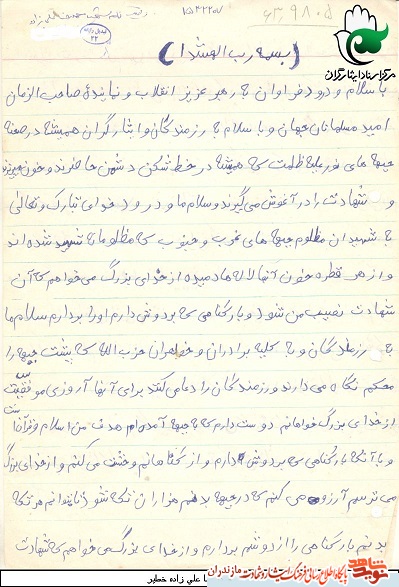 ۱۵۴۲۲۰۷
۶۳,۹۸۰۵
مرکز اسناد ایثارگران
(بسمه رب الشهدا)
با سلام و درود فراوان به رهبر عزیز انقلاب و نماینده صاحب الزمان
امید مسلمانان جهان و با سلام به رزمندگان و ایثارگران همیشه در صحنه
جبهه های نور علیه ظلمت که همیشه در خط شکن دشمن حاضرند و خون میدهند
و شهادت را در آغوش می گیرند و سلام ما و درود خدای تبارک و تعالی
به شهیدان مظلوم جبهه های غرب و جنوب که مظلومانه شهید شده اند
و از هر قطره خون آنها لاله ها دمیده از خدای بزرگ می خواهم که آن
شهادت نصیب من شود و بار گناهی که بر دوش دارم او را بردارم سلام ما
به رزمندگان و به کلیه برادران و خواهران حزب الله که پشت جبهه را
محکم نگاه می دارند و رزمندگان را دعا می کنند برای آنها آرزوی موفقیت
از خدای بزرگ خواهانم دوست دارم که به جبهه آمده ام هدف من اسلام و قرآن
و با آنکه بار گناهی که بر دوش دارم و از گناهانم وحشت می کنم و از خدای بزرگ
می ترسم آرزو می کنم که در جبهه بدنم هزاران تکه شود تا بتوانم هر تکه
بدنم بار گناهی را از دوشم بردارم و از خدای بزرگ می خواهم که شهادت
علی زاده خطیر
نوید شاهد
پایگاه اطلاع رسانی فرهنگ ایثار و شهادت مازندران